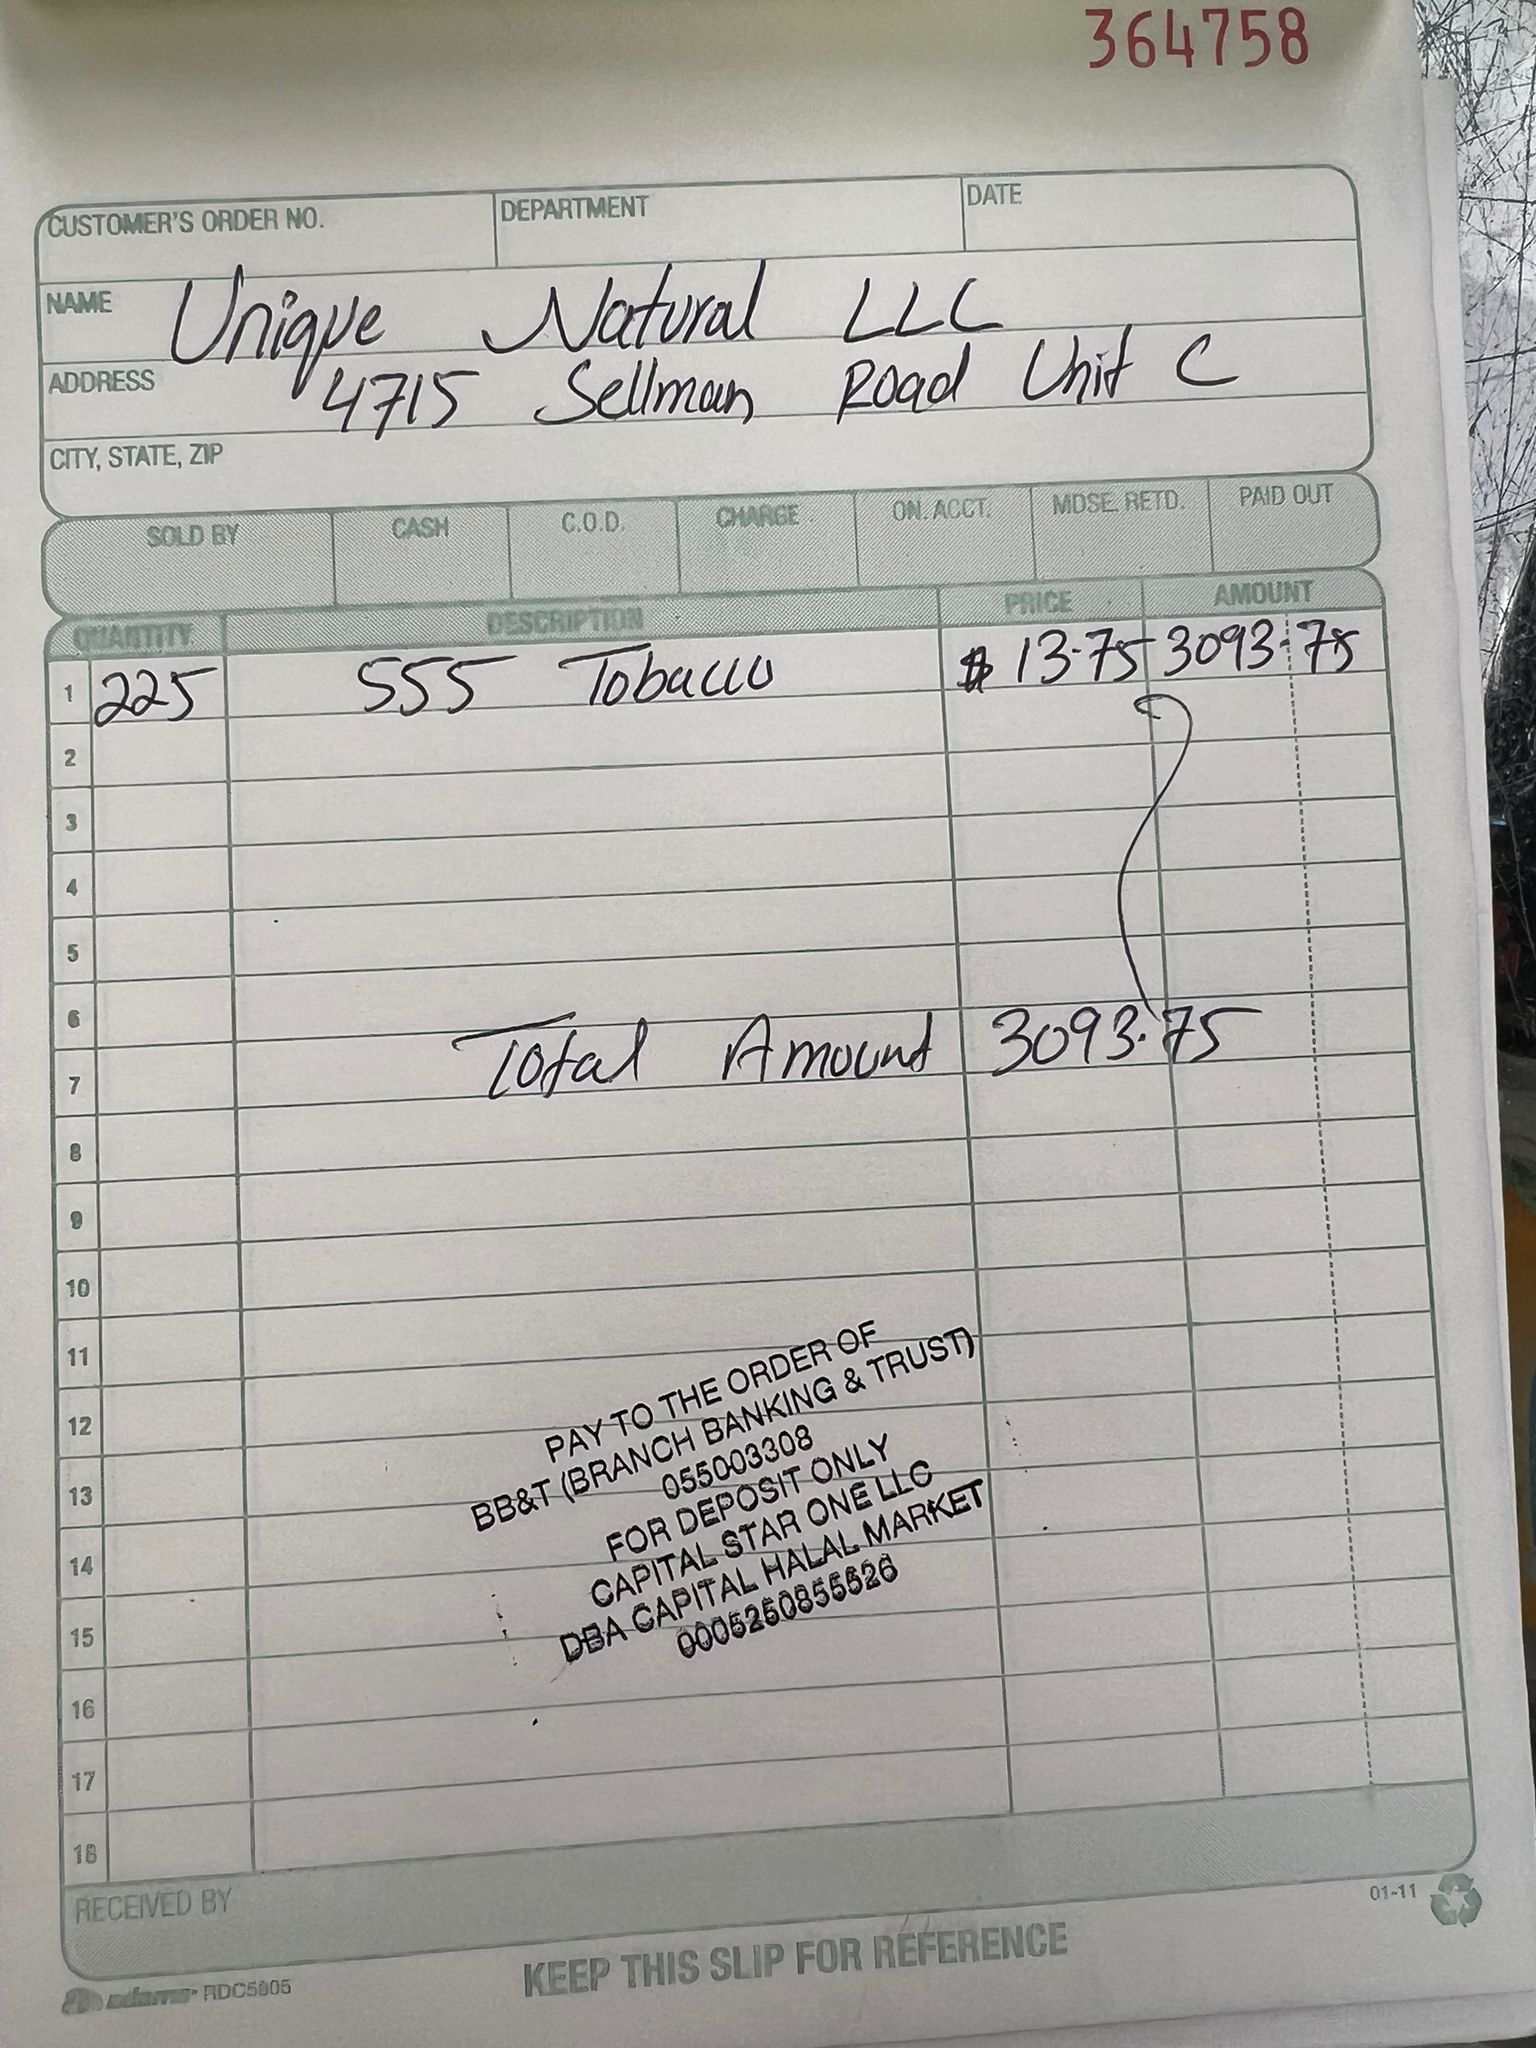 364758
CUSTOMER'S ORDER NO. DEPARTMENT DATE
NAME Unique Natural LLC
ADDRESS 4715 Sellman Road Unit C
CITY, STATE, ZIP
SOLD BY CASH C.O.D. CHARGE ON. ACCT. MDSE. RETD. PAID OUT
QUANTITY DESCRIPTION PRICE AMOUNT
1 225 555 Tobacco $ 13.75 3093.75
2
3
4
5
6
7 Total Amount 3093.75
8
9
10
11
12
13
14
15
16
17
18
PAY TO THE ORDER OF
BB&T (BRANCH BANKING & TRUST)
055003308
FOR DEPOSIT ONLY
CAPITAL STAR ONE LLC
DBA CAPITAL HALAL MARKET
0005250855526
RECEIVED BY
01-11
adams RDC5805
KEEP THIS SLIP FOR REFERENCE